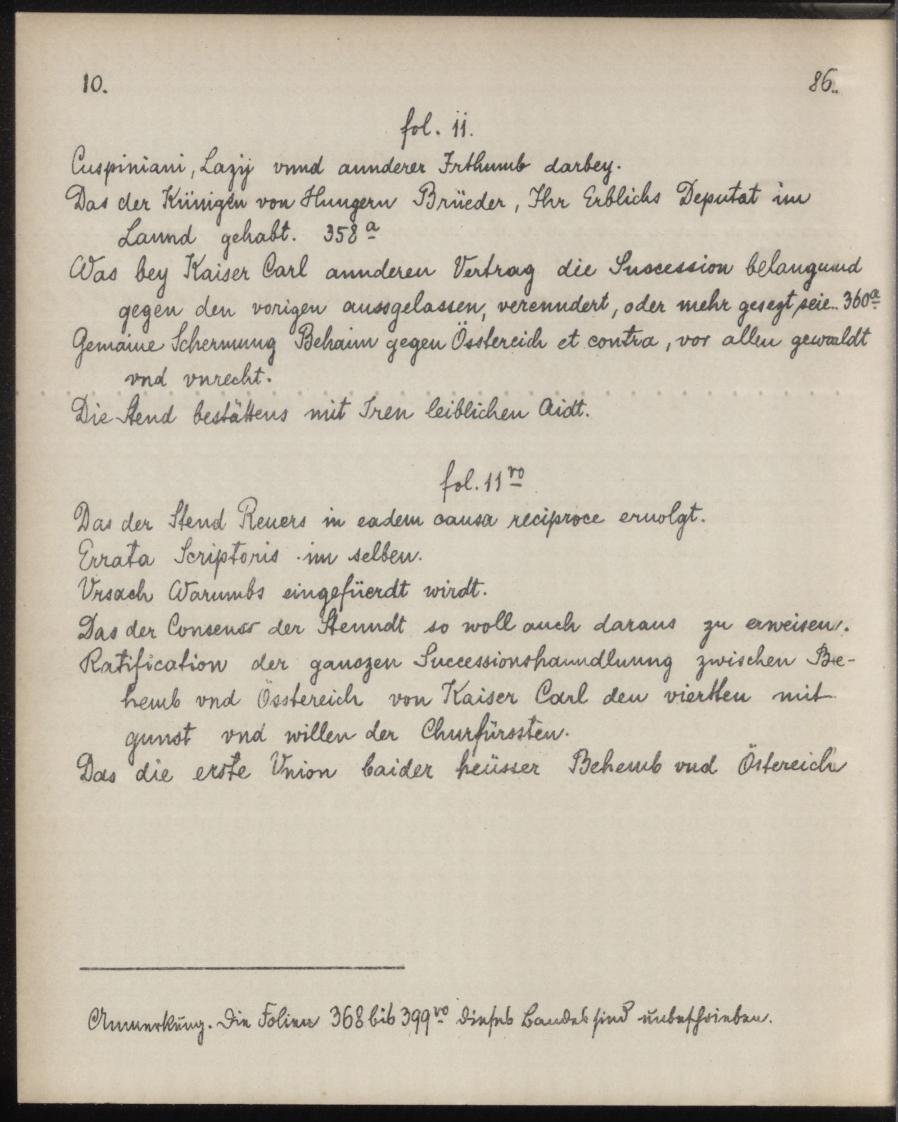 10. 86.
fol. 11.
Cuspiniani, Lazÿ vnnd annderer Irthumb darbey.
Das der Künigen von Hungern Brüeder, Ihr Erblichs Deputat im
Lannd gehabt. 358ª
Was bey Kaiser Carl annderen Vertrag die Succession belangund
gegen den vorigen aussgelassen, verenndert, oder mehr gesezt seie. 360ª
Gemaine Schermung Behaim gegen Össtereich et contra, vor allen gewaldt
vnd vnrecht.
Die Stend bestättens mit Iren leiblichen Aidt.
fol. 11ᵛᵒ
Das der Stend Reuers in eadem causa reciproce eruolgt.
Errata Scriptoris im selben.
Vrsach Warumbs eingefüerdt wirdt.
Das der Consenss der Stenndt so woll auch daraus zu erweisen.
Ratification der ganczen Successionshanndlunng zwischen Be-
hemb vnd Össtereich von Kaiser Carl den viertten mit
gunst vnd willen der Churfürssten.
Das die erste Vnion baider heüsser Behemb vnd Östereich
Anmerkung. Die Folien 368 bis 399ᵛᵒ dieses Bandes sind unbeschrieben.